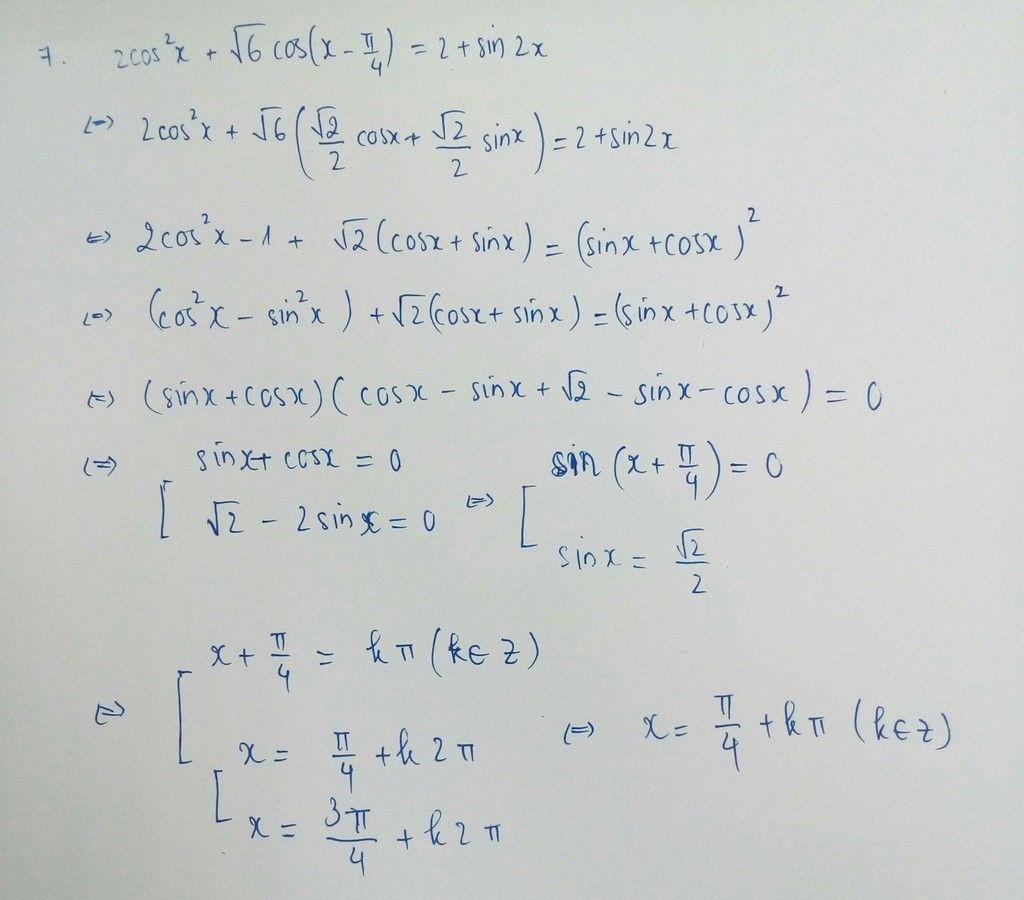 7. 2cos²x + √6 cos(x - π/4) = 2 + sin 2x
⇔ 2cos²x + √6 (√2/2 cosx + √2/2 sinx) = 2 + sin2x
⇔ 2cos²x - 1 + √2 (cosx + sinx) = (sinx + cosx)²
⇔ (cos²x - sin²x) + √2 (cosx + sinx) = (sinx + cosx)²
⇔ (sinx + cosx)( cosx - sinx + √2 - sinx - cosx ) = 0
⇔ [ sinx + cosx = 0
√2 - 2sinx = 0
⇔ [ sin (x + π/4) = 0
sinx = √2/2
⇔ [ x + π/4 = kπ (k∈Z)
x = π/4 + k2π
[ x = 3π/4 + k2π
⇔ x = π/4 + kπ (k∈Z)